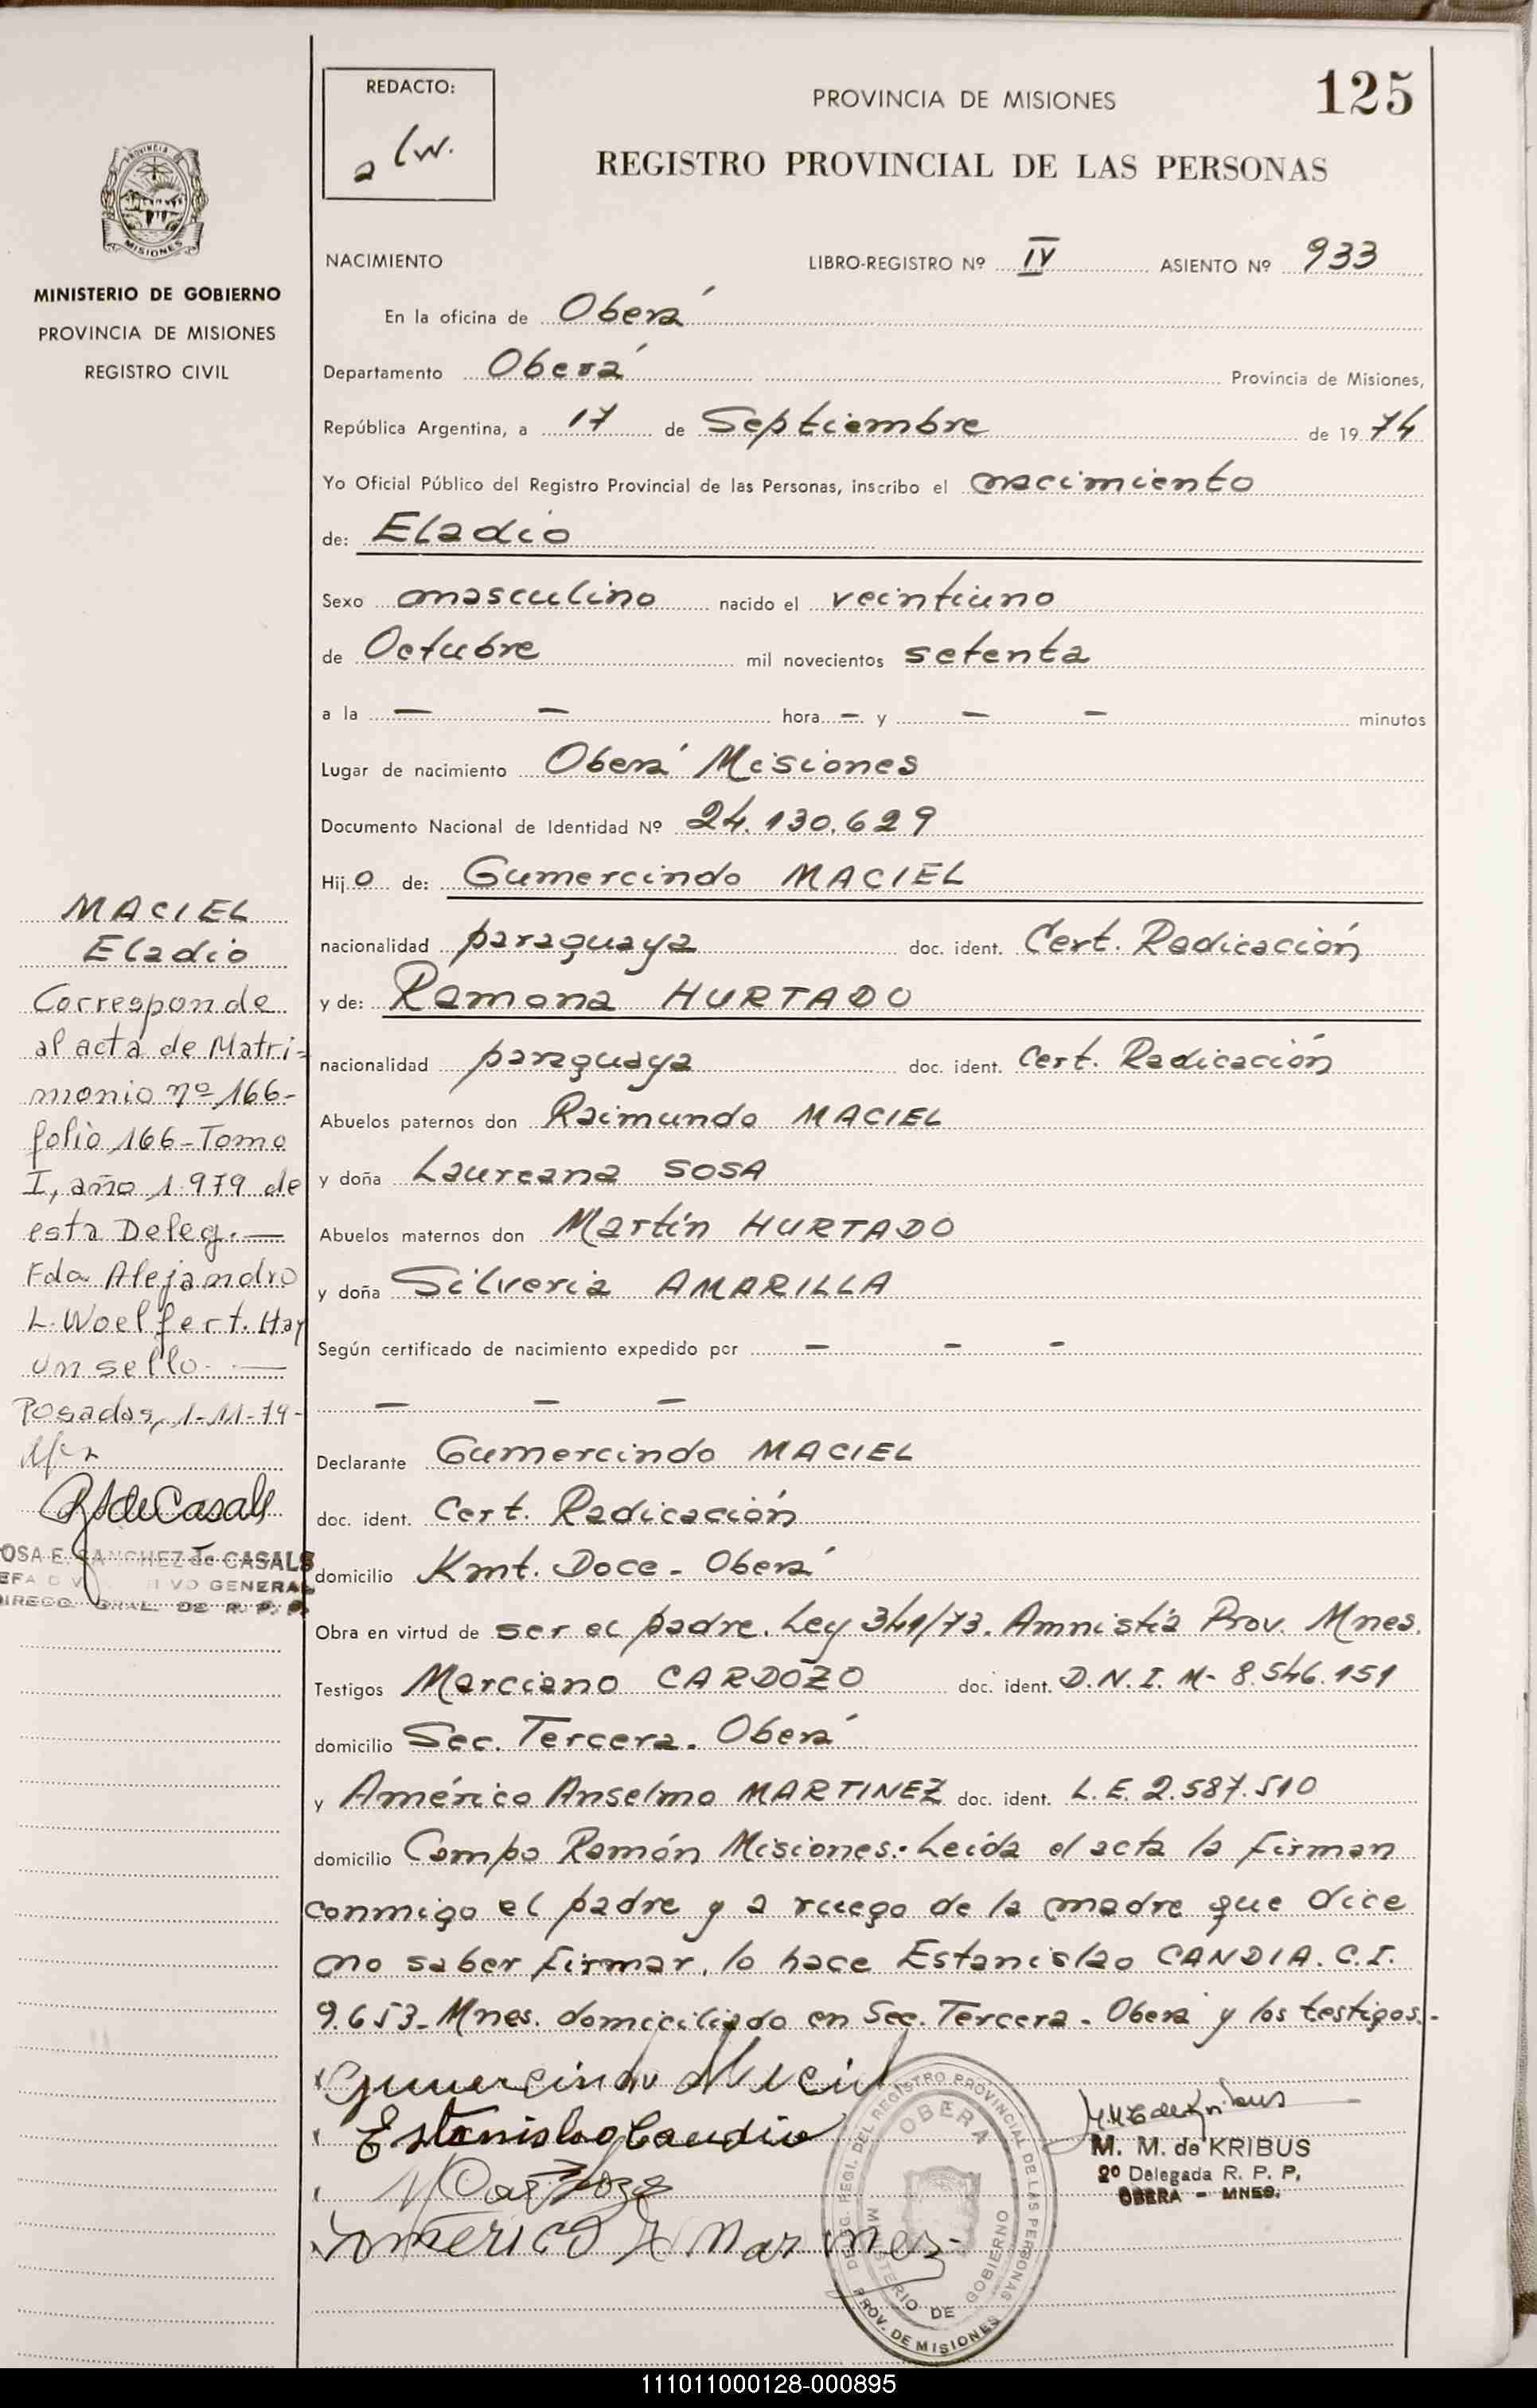 REDACTO:
PROVINCIA DE MISIONES
125
REGISTRO PROVINCIAL DE LAS PERSONAS
MISIONES
MINISTERIO DE GOBIERNO
PROVINCIA DE MISIONES
REGISTRO CIVIL
NACIMIENTO LIBRO-REGISTRO Nº IV ASIENTO Nº 933
En la oficina de Oberá
Departamento Oberá Provincia de Misiones,
República Argentina, a 17 de Septiembre de 1974
Yo Oficial Público del Registro Provincial de las Personas, inscribo el nacimiento
de: Eladio
Sexo masculino nacido el veintiuno
de Octubre mil novecientos setenta
a la — — hora — y — — minutos
Lugar de nacimiento Oberá Misiones
Documento Nacional de Identidad Nº 24.130.629
Hijo de: Gumercindo MACIEL
nacionalidad paraguaya doc. ident. Cert. Radicación
y de: Ramona HURTADO
nacionalidad paraguaya doc. ident. Cert. Radicación
Abuelos paternos don Raimundo MACIEL
y doña Laureana SOSA
Abuelos maternos don Martín HURTADO
y doña Silveria AMARILLA
Según certificado de nacimiento expedido por — — —
— — —
Declarante Gumercindo MACIEL
doc. ident. Cert. Radicación
domicilio Kmt. Doce - Oberá
Obra en virtud de ser el padre. Ley 341/73. Amnistía Prov. Mnes.
Testigos Marciano CARDOZO doc. ident. D.N.I. M- 8.546.151
domicilio Sec. Tercera. Oberá
y Américo Anselmo MARTINEZ doc. ident. L.E. 2.587.510
domicilio Campo Ramón Misiones.- Leída el acta la firman
conmigo el padre y a ruego de la madre que dice
no saber firmar, lo hace Estanislao CANDIA. C.I.
9.653- Mnes. domiciliado en Sec. Tercera - Oberá y los testigos.-
MACIEL
Eladio
Corresponde
al acta de Matri-
monio nº 166-
folio 166-Tomo
I, año 1.979 de
esta Deleg.—
Fdo. Alejandro
L. Woelfert. Hay
un sello.—
Posadas, 1-11-79-
OSA E. SANCHEZ de CASALS
GENERAL
DIRECC. GRAL. DE R. P. P.
Gumercindo Maciel
Estanislao Candia
M Cardozo
Americo A Martinez
M. M. de KRIBUS
2º Delegada R. P. P.
OBERA - MNES.
DELEG. REGI. DEL REGISTRO PROVINCIAL DE LAS PERSONAS
OBERA
MINISTERIO DE GOBIERNO
PROV. DE MISIONES
111011000128-000895